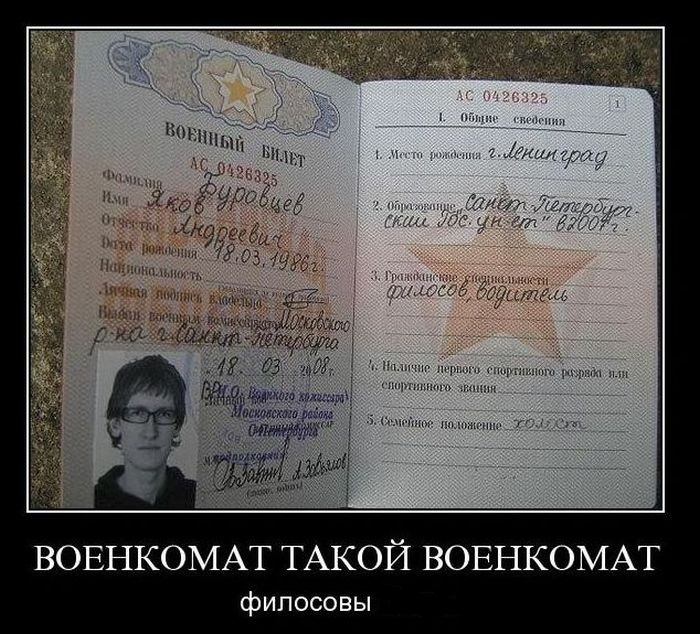 ВОЕННЫЙ БИЛЕТ
АС 0426325
Фамилия Буровцев
Имя Яков
Отчество Андреевич
Дата рождения 18.03.1986г.
Национальность
Личная подпись владельца
Выдан военным комиссариатом Московского
р-на г. Санкт-Петербурга
18. 03 2008г.
ВР.И.О. Военного комиссара
Московского района
С-Петербурга
подполковник
А. Завьялов
АС 0426325
1
I. Общие сведения
1. Место рождения г. Ленинград
2. Образование Санкт-Петербург-
ский Гос. ун-ет" в 2007г.
3. Гражданские специальности
философ, водитель
4. Наличие первого спортивного разряда или
спортивного звания
5. Семейное положение холост
ВОЕНКОМАТ ТАКОЙ ВОЕНКОМАТ
филосовы